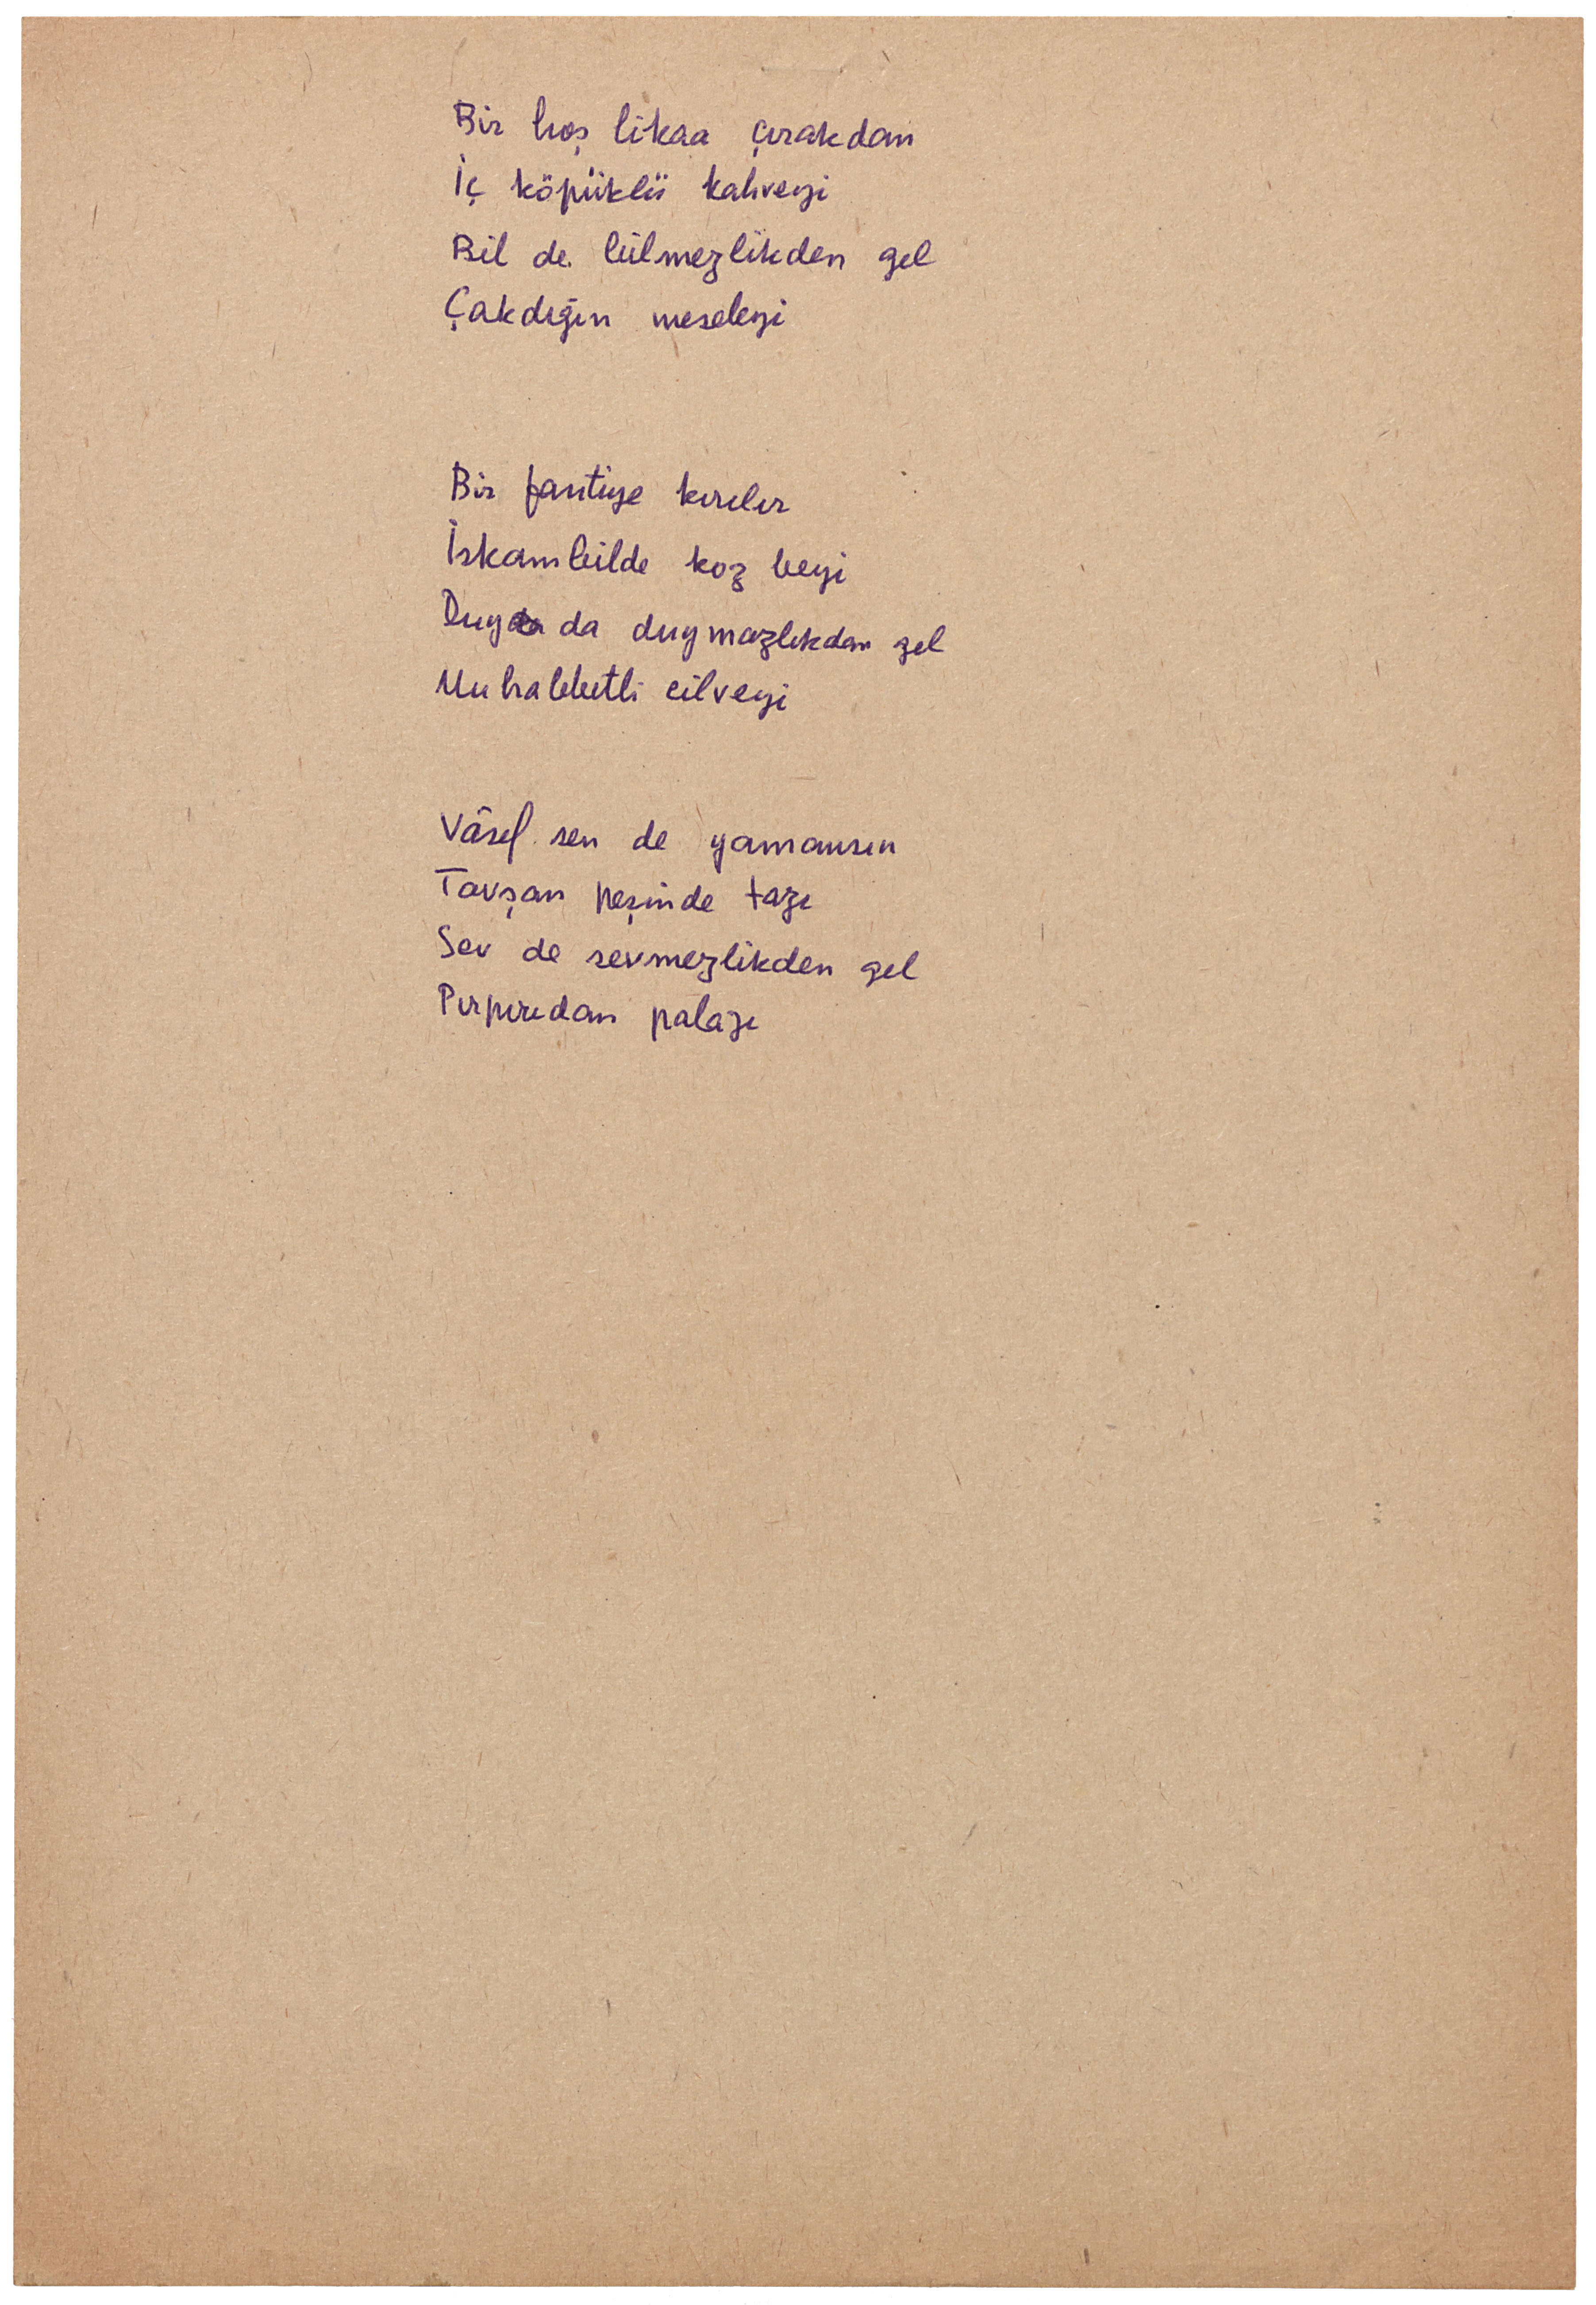 Bir hoş likaa çırakdan
İç köpüklü kahveyi
Bil de bilmezlikden gel
Çakdığın meseleyi
Bir fantiye kırılır
İskambilde koz beyi
Duy da duymazlıkdan gel
Muhabbetli cilveyi
Vâsıf sen de yamansın
Tavşan peşinde tazı
Sev de sevmezlikden gel
Pırpırıdan palazı